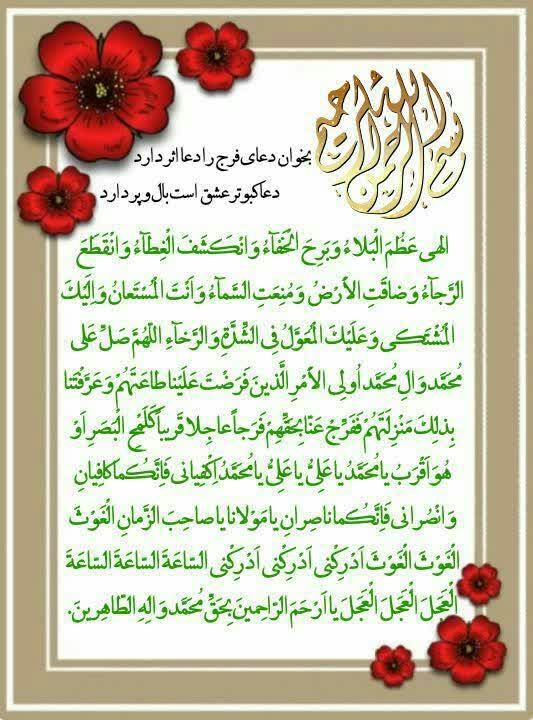 بسم الله الرحمن الرحیم
بخوان دعای فرج را دعا اثر دارد
دعا کبوتر عشق است بال و پر دارد
الهی عَظُمَ الْبَلاءُ وَبَرِحَ الْخَفآءُ وَانْکَشَفَ الْغِطآءُ وَانْقَطَعَ
الرَّجآءُ وَضاقَتِ الأَرْضُ وَمُنِعَتِ السَّمآءُ وَاَنْتَ الْمُسْتَعانُ وَاِلَیْکَ
الْمُشْتَکی وَعَلَیْکَ الْمُعَوَّلُ فِی الشِّدَّةِ وَالرَّخاءِ اللهُمَّ صَلِّ عَلی
مُحَمَّدٍ وَالِ مُحَمَّدٍ اُولِی الأَمْرِ الَّذینَ فَرَضْتَ عَلَیْنا طاعَتَهُمْ وَعَرَّفْتَنا
بِذلِکَ مَنْزِلَتَهُمْ فَفَرِّجْ عَنّا بِحَقِّهِمْ فَرَجاً عاجِلا قَریباً کَلَمْحِ الْبَصَرِ اَوْ
هُوَ اَقْرَبُ یا مُحَمَّدُ یا عَلِیُّ یا عَلِیُّ یا مُحَمَّدُ اِکْفِیانی فَاِنَّکُما کافِیانِ
وَانْصُرانی فَاِنَّکُما ناصِرانِ یا مَوْلانا یا صاحِبَ الزَّمانِ الْغَوْثَ
الْغَوْثَ الْغَوْثَ اَدْرِکْنی اَدْرِکْنی اَدْرِکْنی السّاعَةَ السّاعَةَ السّاعَةَ
الْعَجَلَ الْعَجَلَ الْعَجَلَ یا اَرْحَمَ الرّاحِمینَ بِحَقِّ مُحَمَّدٍ وَالِهِ الطّاهِرینَ.